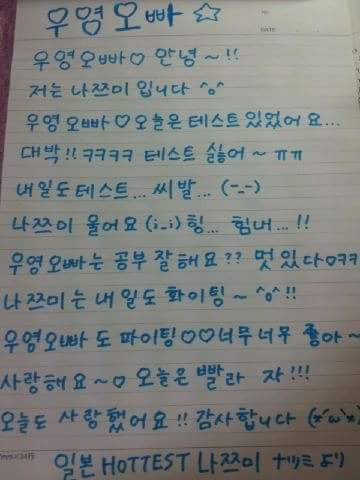 우영오빠☆
우영오빠♡ 안녕~!!
저는 나쯔미 입니다 ^o^
우영오빠♡오늘은테스트 있었어요...
대박!! ㅋㅋㅋㅋ 테스트 싫어~ ㅠㅠ
내일도테스트... 씨발... (-_-)
나쯔미 울어요 (i_i) 힝... 힘내...!!
우영오빠는 공부 잘해요?? 멋있다ㅇㅋㅋ
나쯔미는 내일도 화이팅~ ^o^!!
우영오빠 도 파이팅♡♡너무너무 좋아~
사랑해요~♡ 오늘은 빨라 자!!!
오늘도 사랑했어요!! 감사합니다 (*´ω`*)
일본 HOTTEST 나쯔미 ナツミ より